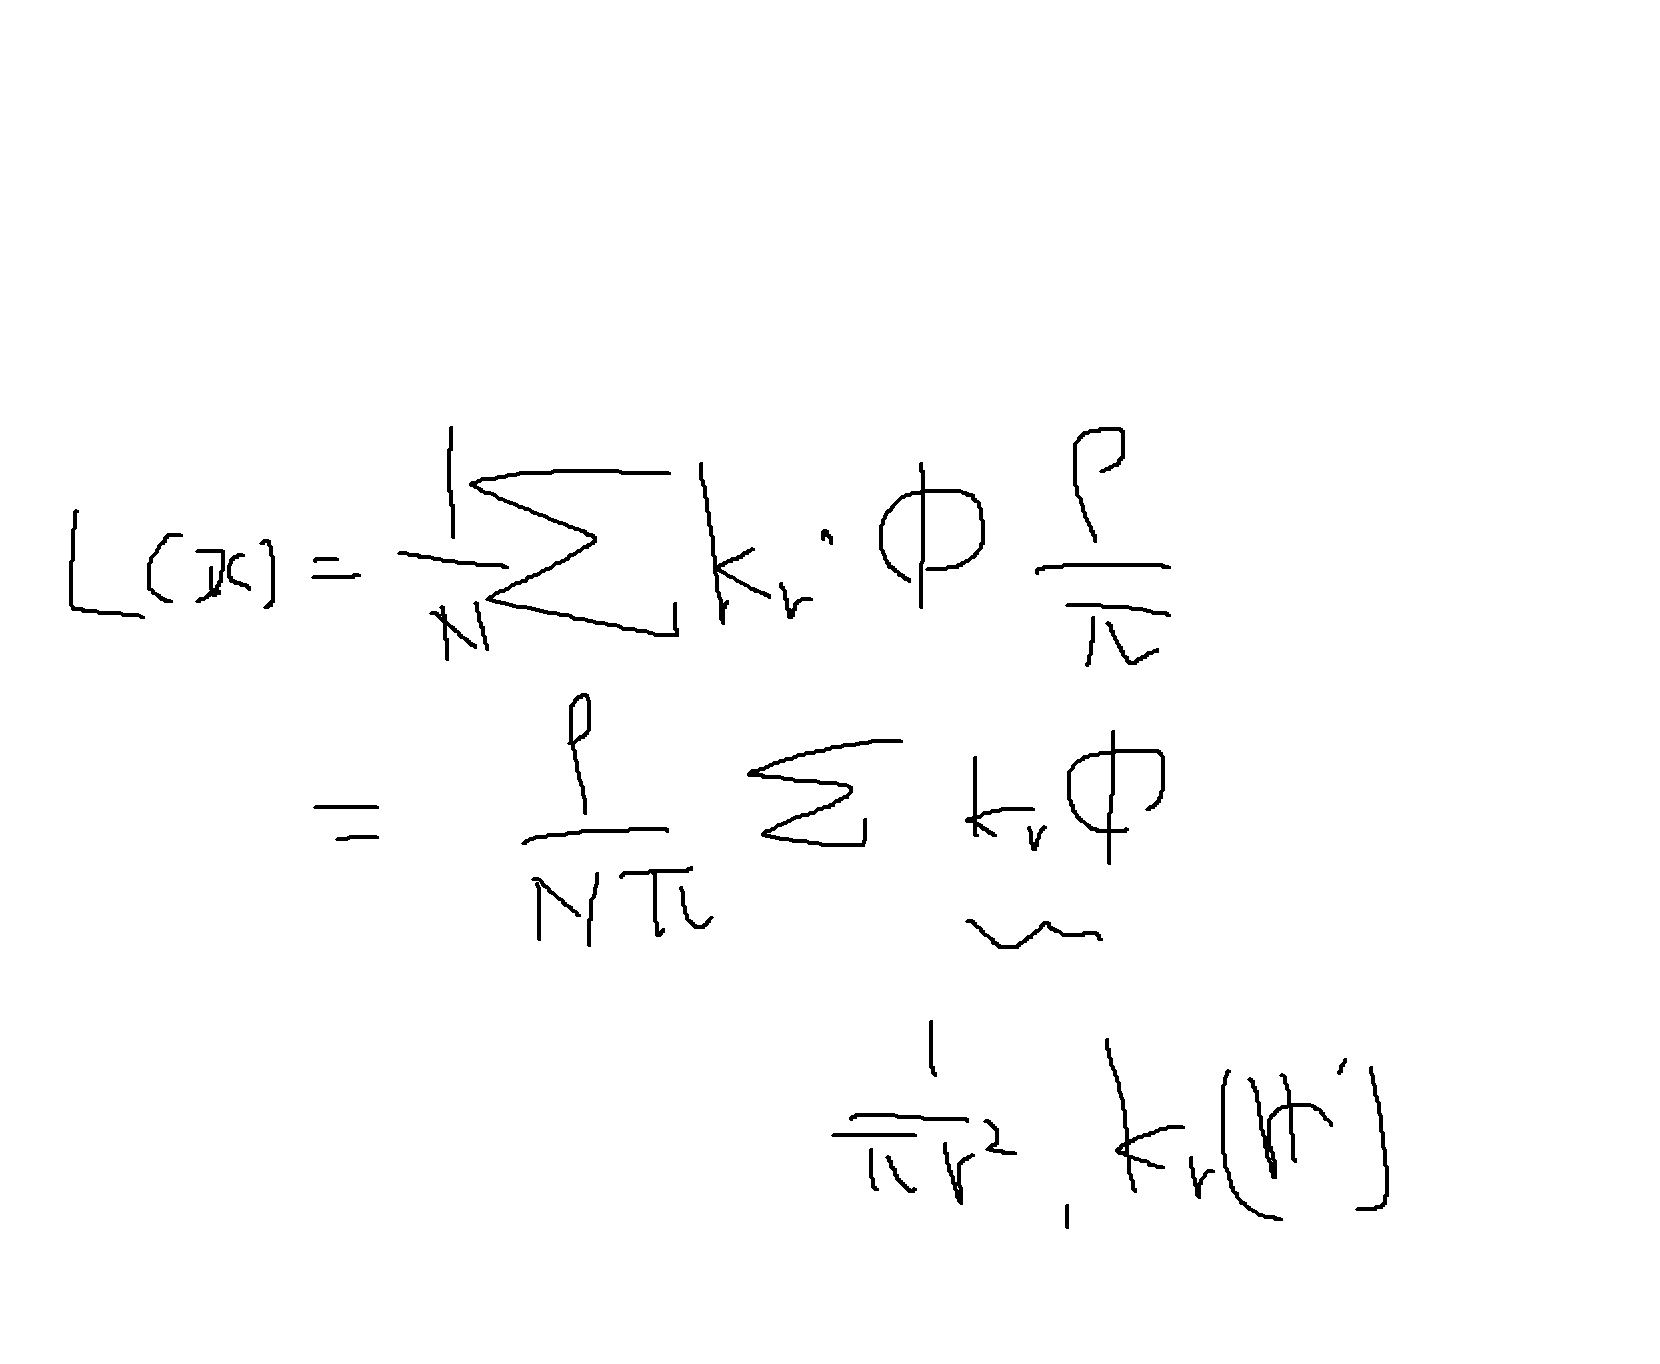 L(x) = 1/N Σ k_r · Φ ρ/π
= ρ/(Nπ) Σ k_r Φ
1/(π r²) , k_r( ' )